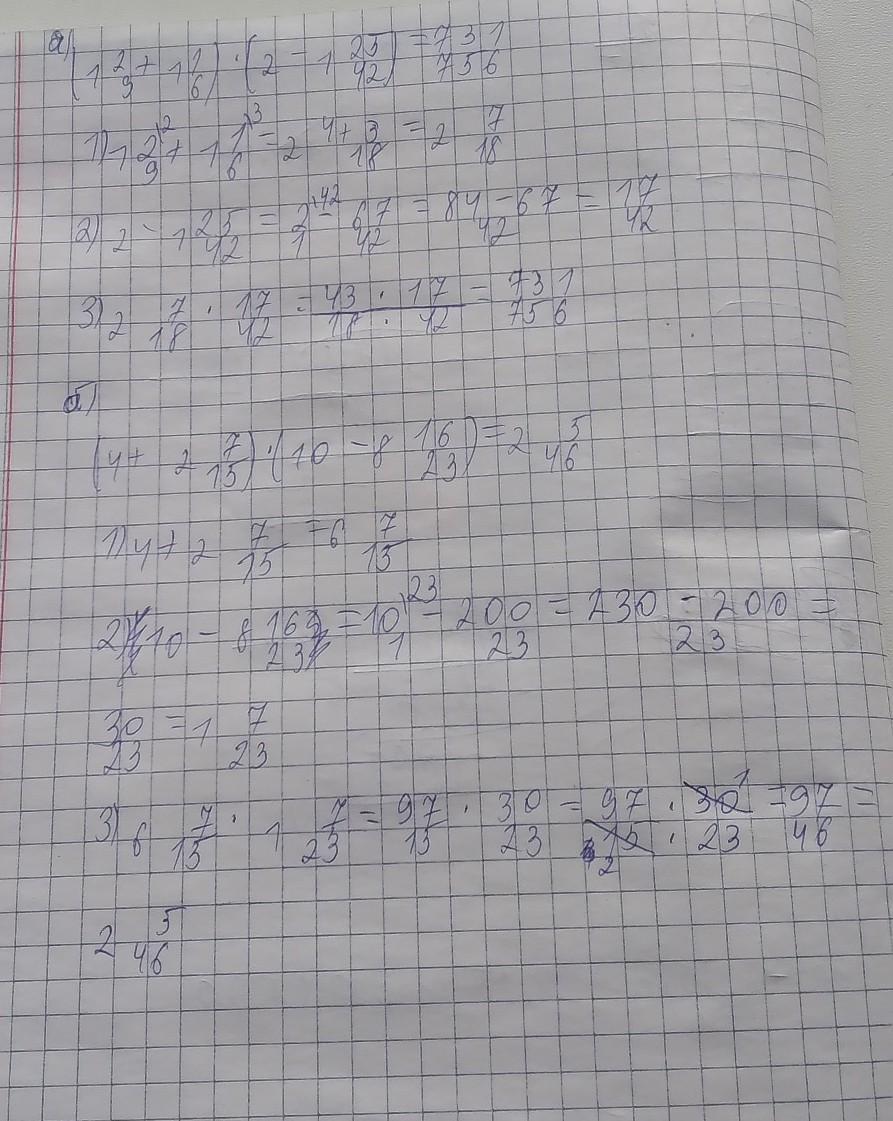 а)
(1 2/9 + 1 1/6) · (2 - 1 25/42) = 731/756
1) 1 2/9 \2 + 1 1/6 \3 = 2 4+3/18 = 2 7/18
2) 2 - 1 25/42 = 2/1 \42 - 67/42 = 84-67/42 = 17/42
3) 2 7/18 · 17/42 = 43 · 17/18 · 42 = 731/756
б)
(4 + 2 7/15) · (10 - 8 16/23) = 2 5/46
1) 4 + 2 7/15 = 6 7/15
2) 10 - 8 16/23 = 10/1 \23 - 200/23 = 230 - 200/23 =
30/23 = 1 7/23
3) 6 7/15 · 1 7/23 = 97/15 · 30/23 = 97 · 30 1/15 2 · 23 = 97/46 =
2 5/46